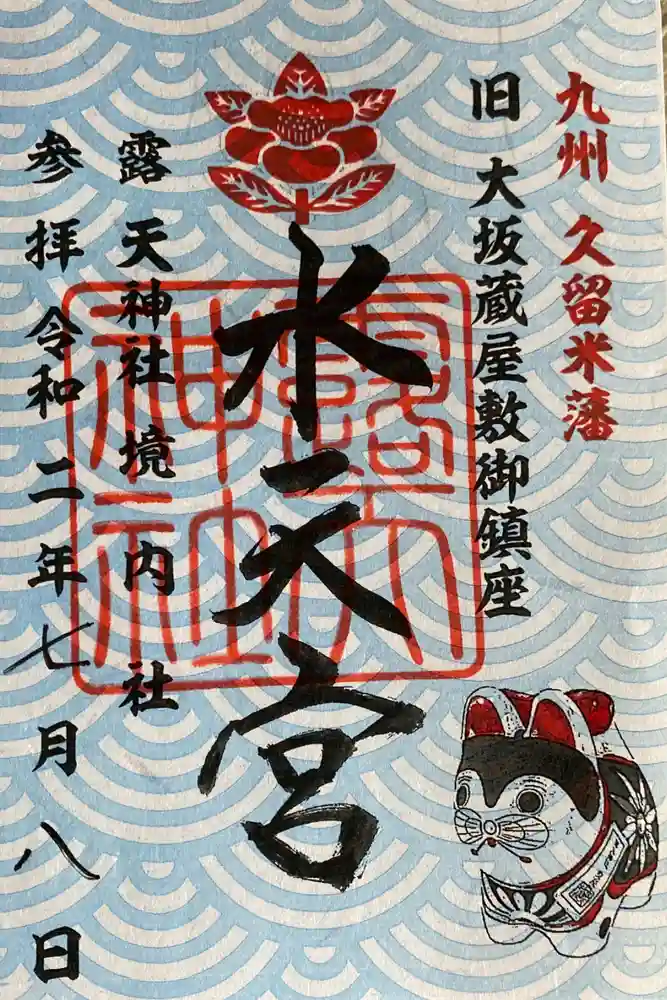 九州 久留米藩
旧 大坂蔵屋敷御鎮座
水天宮
露天神社
露天神社境内社
参拝 令和二年七月八日